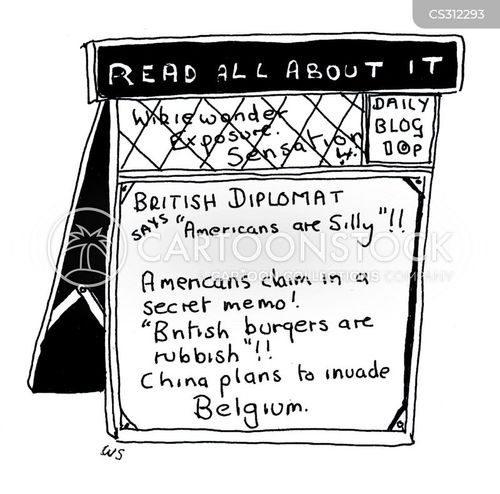 CS312293
READ ALL ABOUT IT
Wikiewonder
Exposure.
Sensation
DAILY
BLOG
10p
BRITISH DIPLOMAT
SAYS "Americans are Silly"!!
Americans claim in a
secret memo!
"British burgers are
rubbish"!!
China plans to invade
Belgium.
CARTOONSTOCK
CARTOON COLLECTIONS COMPANY
WS